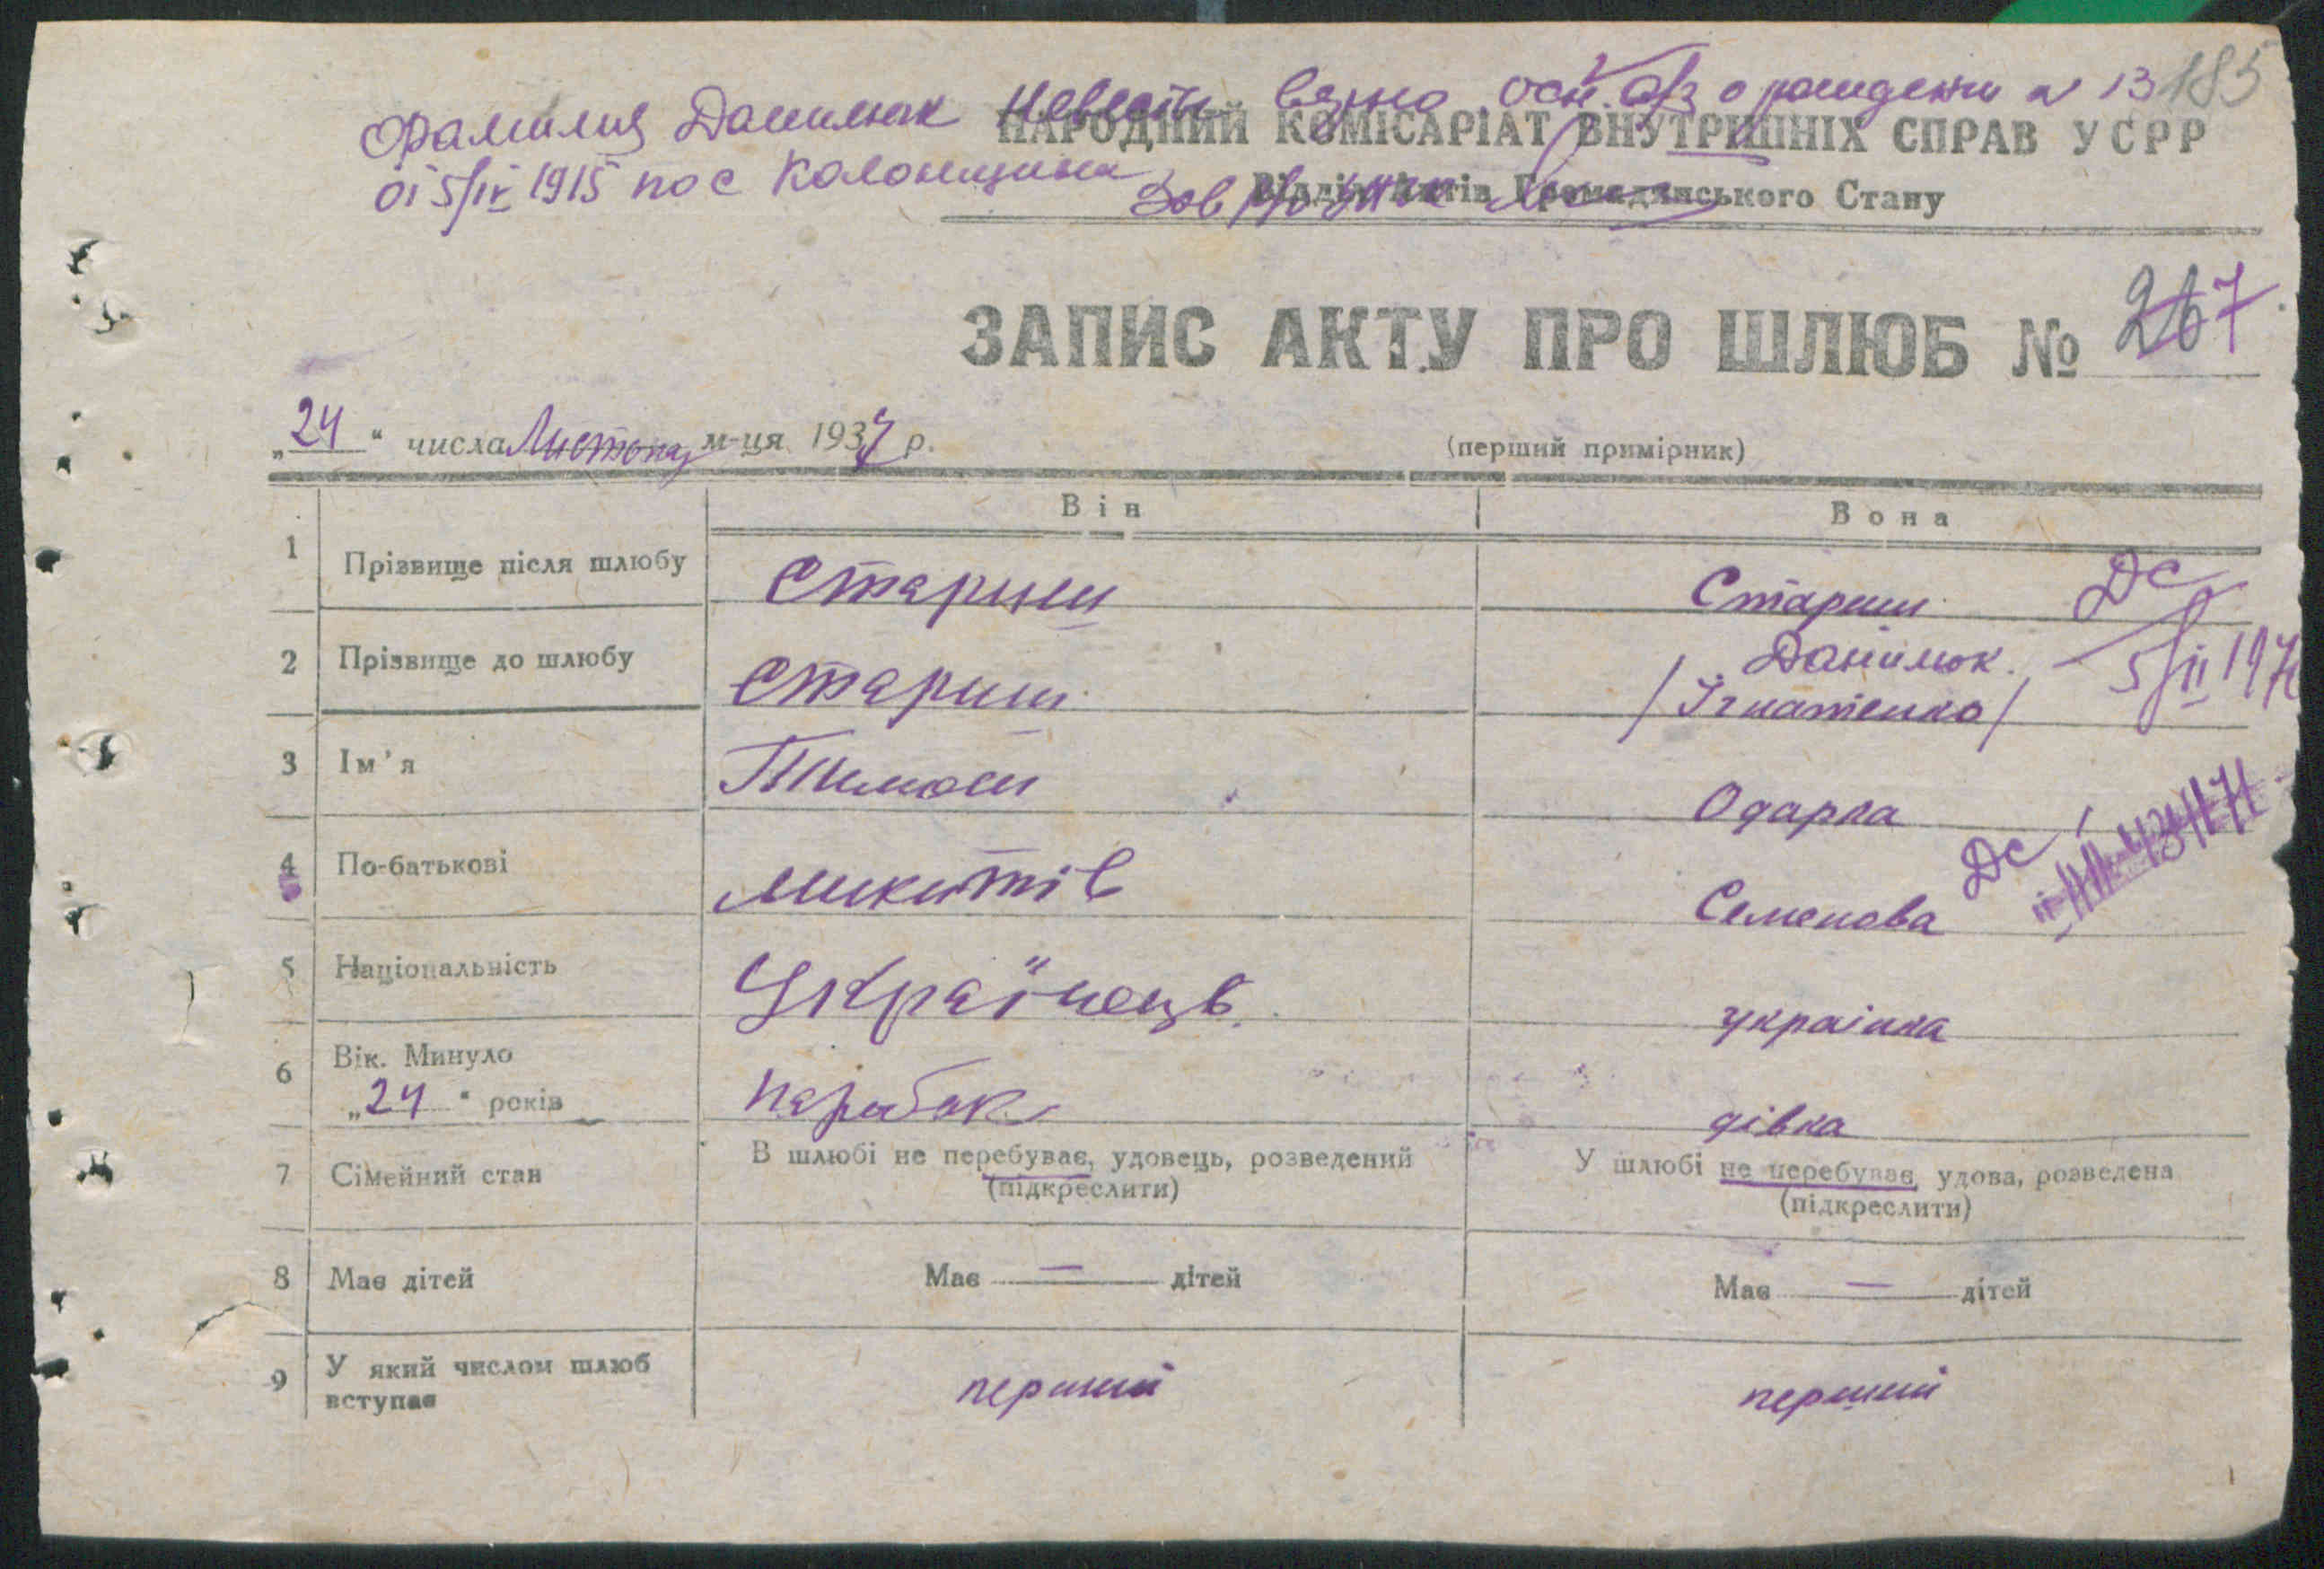 185
Фамилия Данилюк невесты взято осн. а/з о рождении N 13
от 5/IV 1915 по с Колонщина
НАРОДНИЙ КОМІСАРІАТ ВНУТРІШНІХ СПРАВ УСРР
Відділ Актів Громадянського Стану
Зав
ЗАПИС АКТУ ПРО ШЛЮБ № 267
„24“ числа Листопад м-ця 1937 р.
(перший примірник)
Він Вона
1 Прізвище після шлюбу Стариш Стариш ДС
2 Прізвище до шлюбу Стариш Данилюк
/Ігнатенко/ 5/II 197
3 Ім'я Тимош Одарка
4 По-батькові Микитів Семенова ДС
5 Національність Українець українка
6 Вік. Минуло
„24“ років парубок дівка
7 Сімейний стан В шлюбі не перебуває, удовець, розведений У шлюбі не перебуває, удова, розведена
(підкреслити) (підкреслити)
8 Має дітей Має — дітей Має — дітей
9 У який числом шлюб
вступає перший перший